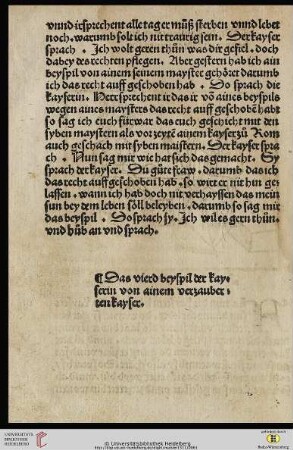 vnnd ir sprechent alle tag er můß sterben vnnd lebet
noch. warumb solt ich nit traurig sein. Der kayser
sprach . Ich wolt geren thůn was dir gefiel. doch
dabey des rechten pflegen. Aber gestern hab ich ain
beyspil von ainem seinem mayster gehöret darumb
ich das recht auff geschoben hab . Do sprach die
kayserin. Herr sprechent ir das ir võ aines beyspils
wegen aines maysters das recht auff geschobẽ habt
so sag ich euch fürwar das euch geschicht mit den
syben maystern als vor zeytẽ ainem kayser zů Rom
auch geschach mit syben maistern. Der kayser spra
ch . Nun sag mir wie hat sich das gemacht. Sy
sprach der kayser. Du gůte fraw . darumb das ich
das recht auff geschoben hab . so wirt er nit hin ge
lassen . wann ich hab doch nit verhayssen das mein
sun bey dem leben söll beleyben . darumb so sag mir
das beyspil . Do sprach sy. Ich wil es gern thůn.
vnd hůb an vnd sprach.
¶ Das vierd beyspil der kay-
serin von ainem verzauber-
ten kayser.
UNIVERSITÄTS-
BIBLIOTHEK
HEIDELBERG
© Universitätsbibliothek Heidelberg
Baden-Württemberg